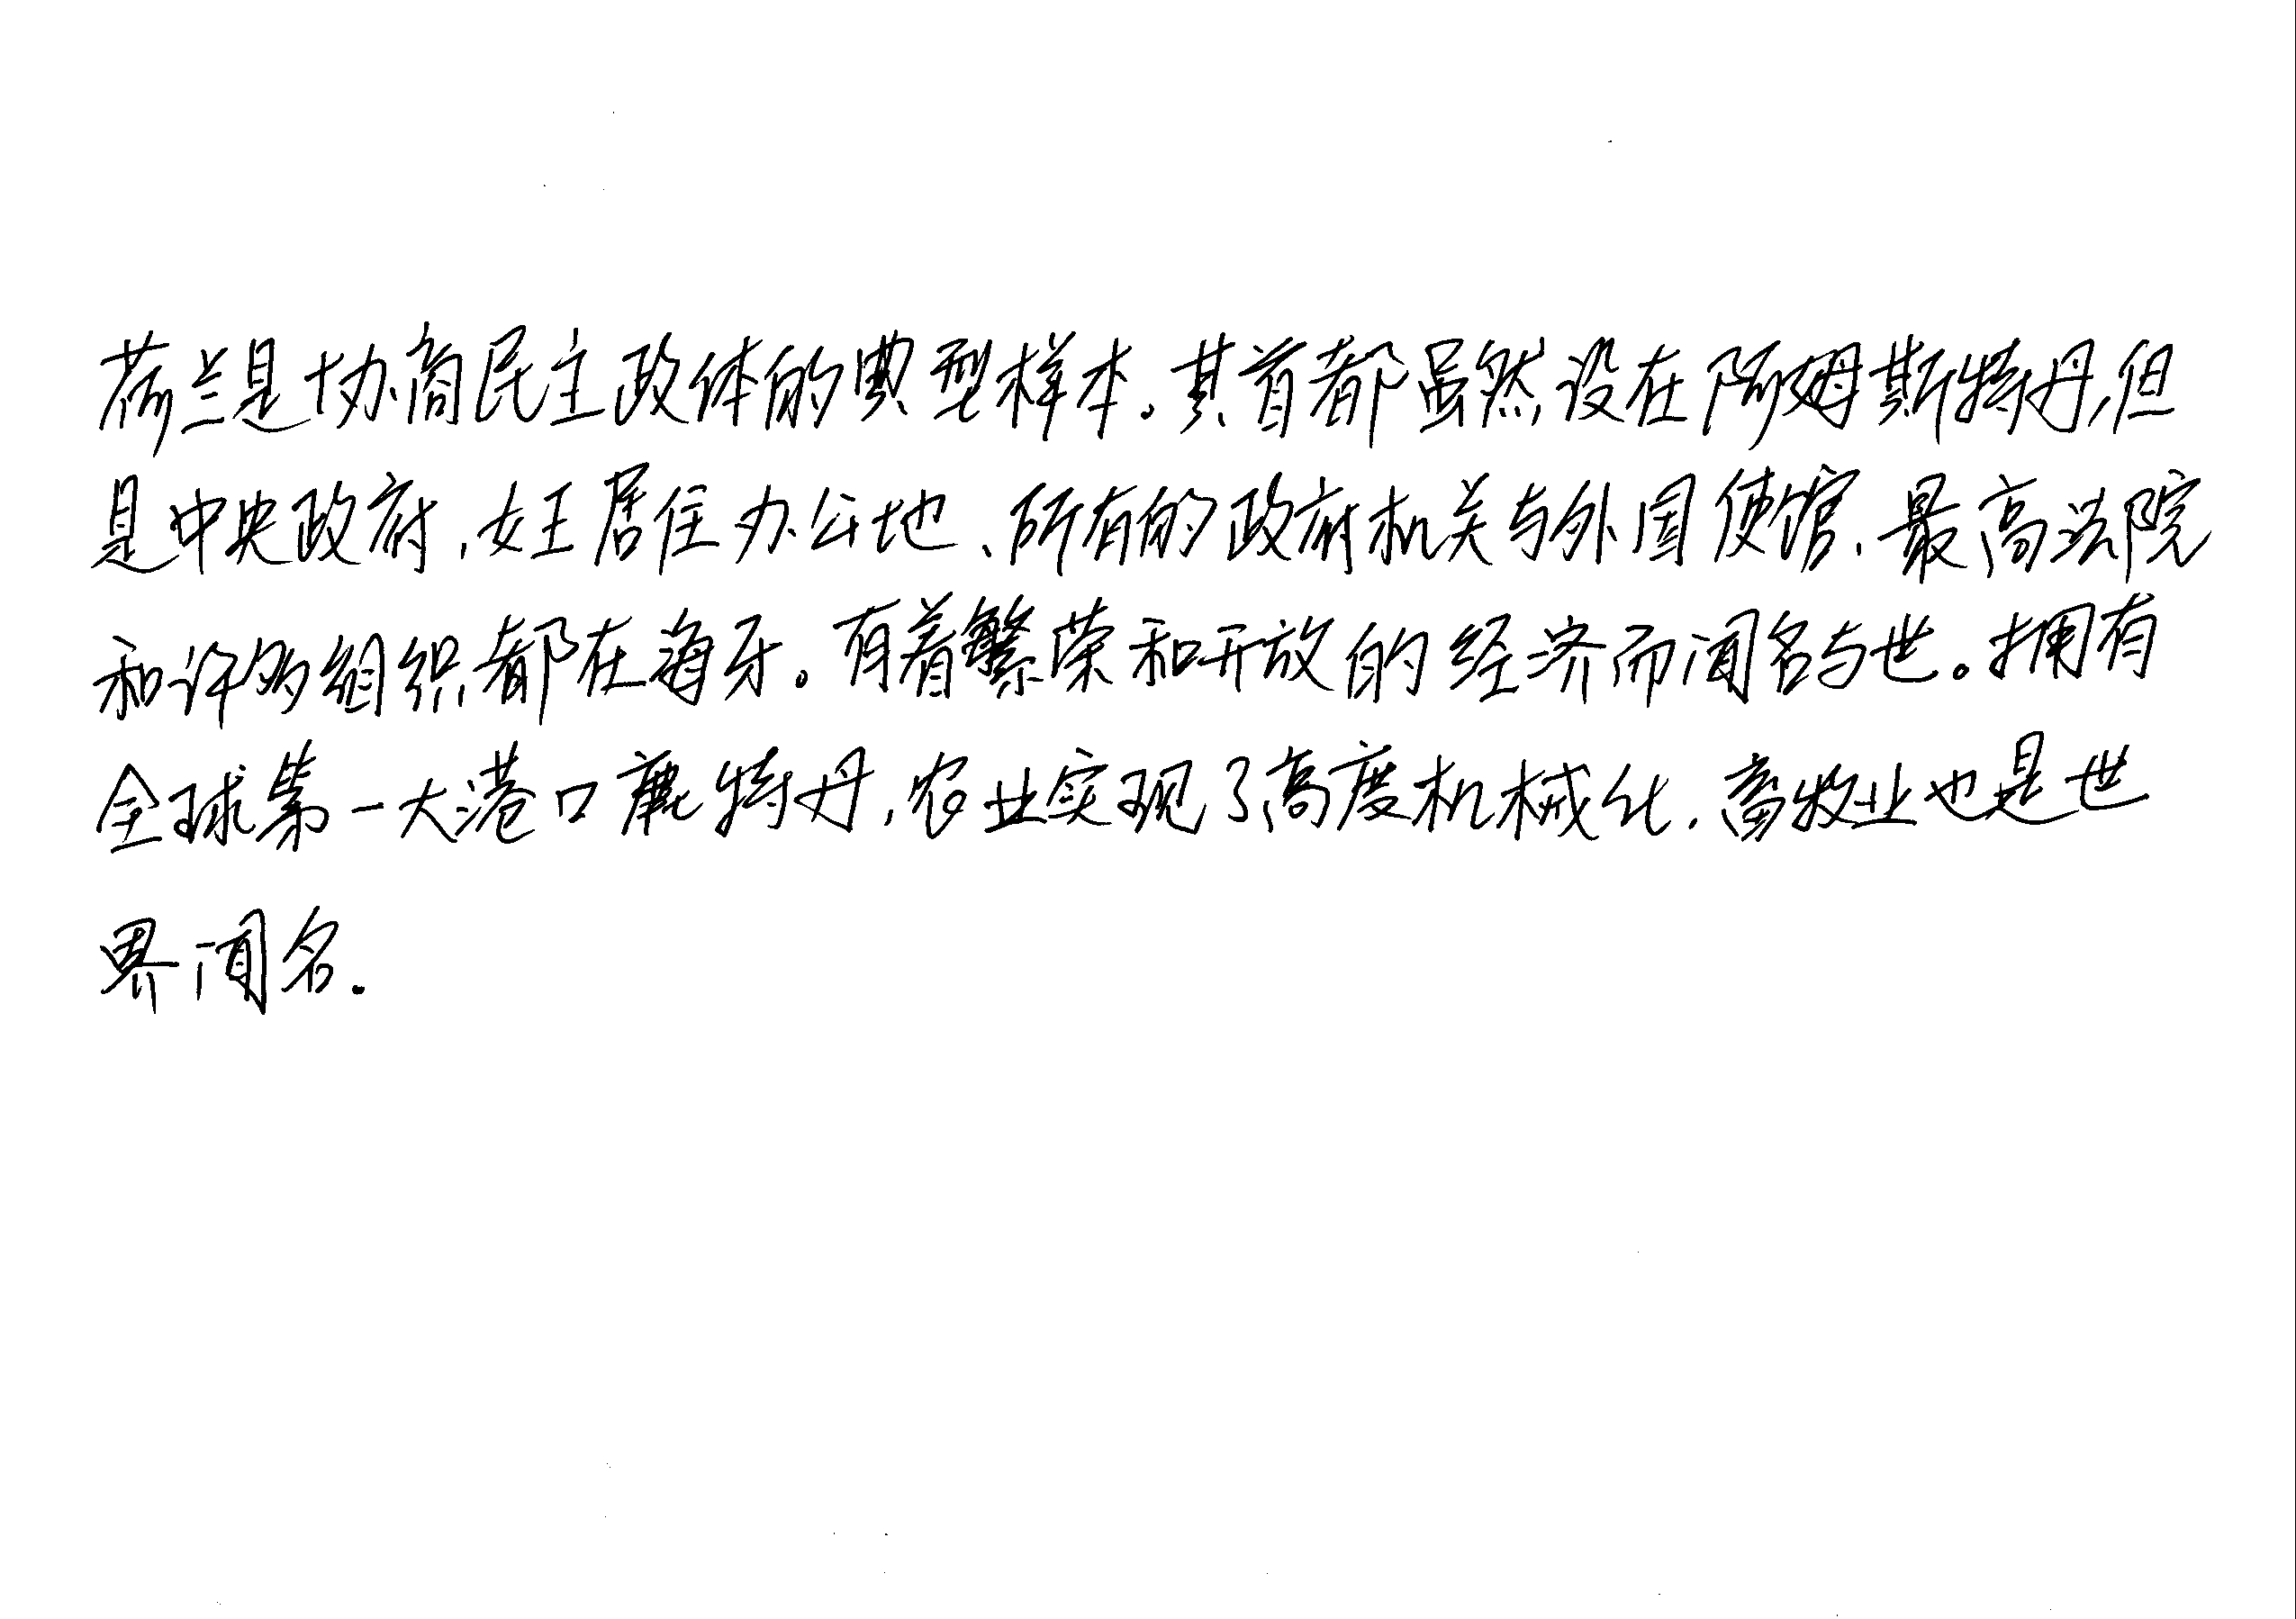 荷兰是协商民主政体的典型样本。其首都虽然设在阿姆斯特丹,但
是中央政府,女王居住办公地、所有的政府机关与外国使馆、最高法院
和许多组织都在海牙。有着繁荣和开放的经济而闻名与世。拥有
全球第一大港口鹿特丹,农业实现了高度机械化,畜牧业也是世
界闻名.